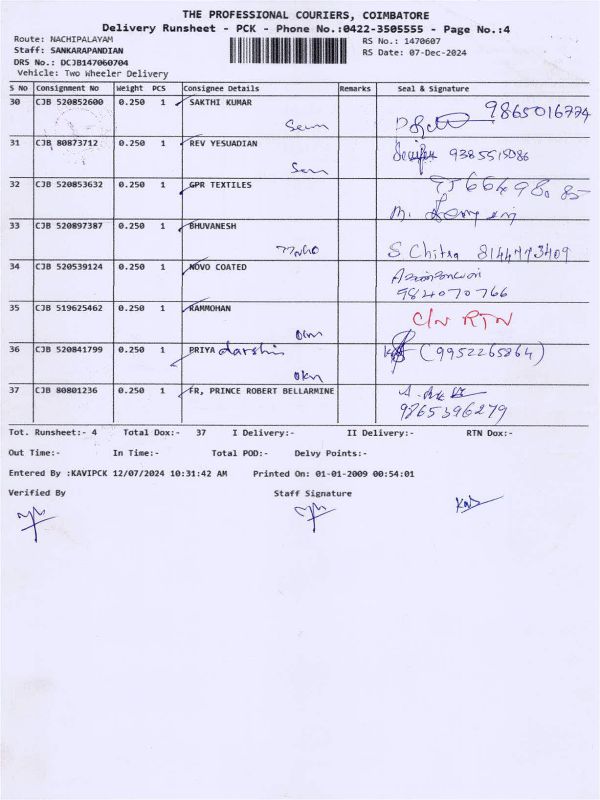 THE PROFESSIONAL COURIERS, COIMBATORE
Delivery Runsheet - PCK - Phone No.:0422-3505555 - Page No.:4
Route: NACHIPALAYAM
RS No.: 1470607
Staff: SANKARAPANDIAN
RS Date: 07-Dec-2024
DRS No.: DCJB147060704
Vehicle: Two Wheeler Delivery
S No Consignment No Weight PCS Consignee Details Remarks Seal & Signature
30 CJB 520852600 0.250 1 SAKTHI KUMAR 9865016774
31 CJB 80873712 0.250 1 REV YESUADIAN 9385515086
32 CJB 520853632 0.250 1 GPR TEXTILES
33 CJB 520897387 0.250 1 BHUVANESH
S Chitra 8144773409
34 CJB 520539124 0.250 1 NOVO COATED
984070766
35 CJB 519625462 0.250 1 RAMMOHAN C/N RTN
36 CJB 520841799 0.250 1 PRIYA darshini (9952265864)
37 CJB 80801236 0.250 1 FR, PRINCE ROBERT BELLARMINE
9865396279
Tot. Runsheet:- 4 Total Dox:- 37 I Delivery:- II Delivery:- RTN Dox:-
Out Time:- In Time:- Total POD:- Delvy Points:-
Entered By :KAVIPCK 12/07/2024 10:31:42 AM Printed On: 01-01-2009 00:54:01
Verified By Staff Signature